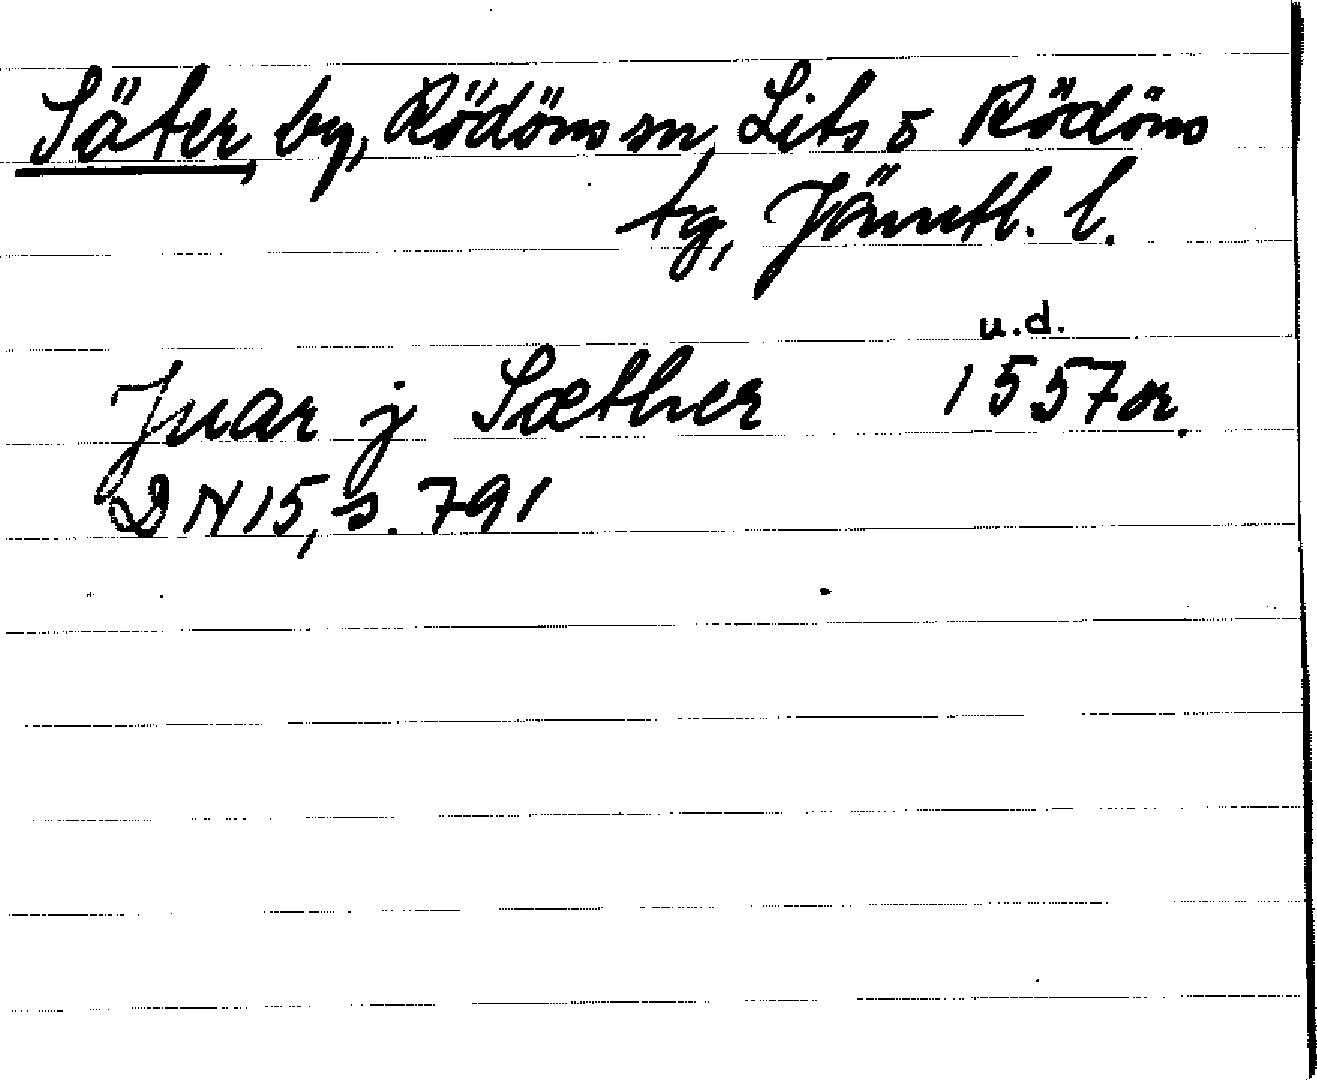 Säter, by, Rödöns sn, Lits o Rödöns
tg, Jämtl. l.
u.d.
Juar j Sæther 1557 or.
DN 15, s. 791